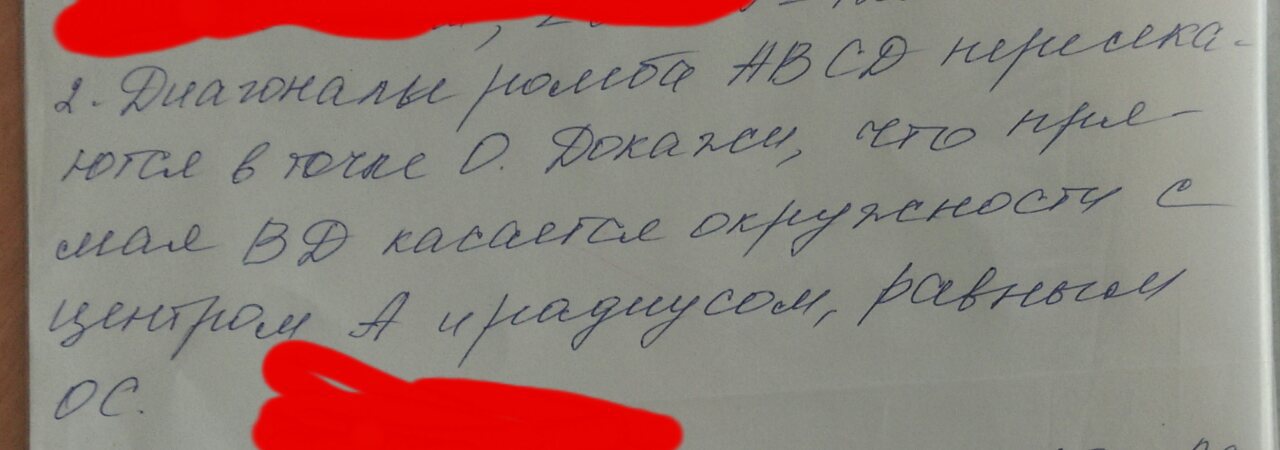 2. Диагонали ромба ABCD пересека-
ются в точке О. Докажи, что пря-
мая BD касается окружности с
центром А и радиусом, равным
ОС.